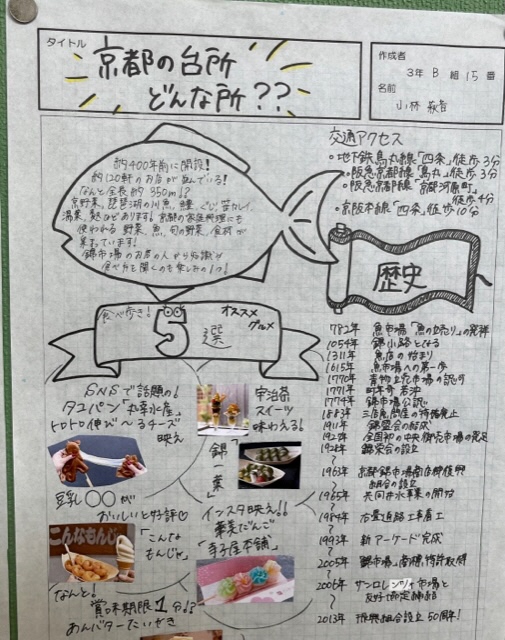 タイトル
京都の台所
どんな所??
作成者
3年 B 組 15番
名前
小林
約400年前に開設!
約120軒のお店が並んでいる!
なんと全長約350m!?
京野菜、琵琶湖の川魚、鱧、ぐじ、笹カレイ、
湯葉、麩などあります! 京都の家庭料理にも
使われる 野菜、魚、旬の野菜、食材が
集まっています!
錦市場のお店の人から知識や
食べ方を聞くのも楽しみの1つ!
交通アクセス
・地下鉄烏丸線「四条」徒歩3分
・阪急京都線「烏丸」徒歩3分
・阪急京都線「京都河原町」
徒歩4分
・京阪本線「四条」徒歩10分
歴史
食べ歩き!
5選
オススメ
グルメ
SNSで話題の!
タコパン「丸幸水産」
トロトロ伸び〜るチーズ
映え
宇治茶
スイーツ
味わえる!
「錦一葉」
豆乳〇〇が
おいしいと好評♡
こんなもんじゃ
「こんな
もんじゃ」
インスタ映え!!
華菜だんご
「寺子屋本舗」
なんと!
賞味期限1分!?
あんバターたいやき
782年 魚市場「魚の立売り」の発祥
1054年 錦小路となる
1311年 魚店の始まり
1615年 魚市場への第一歩
1770年 青物立売市場の認可
1771年 町年寄 若冲
1774年 錦市場公認
1883年 三店魚問屋の特権廃止
1911年 錦盛会の結成
1927年 全国初の中央卸売市場の発足
錦栄会の設立
1963年 京都錦市場商店街振興
組合の設立
1965年 共同井水事業の開始
1984年 石畳道路工事着工
1993年 新アーケード完成
2005年 「錦市場」商標特許取得
2006年 サンロレンツォ市場と
友好協定締結
2013年 振興組合設立50周年!